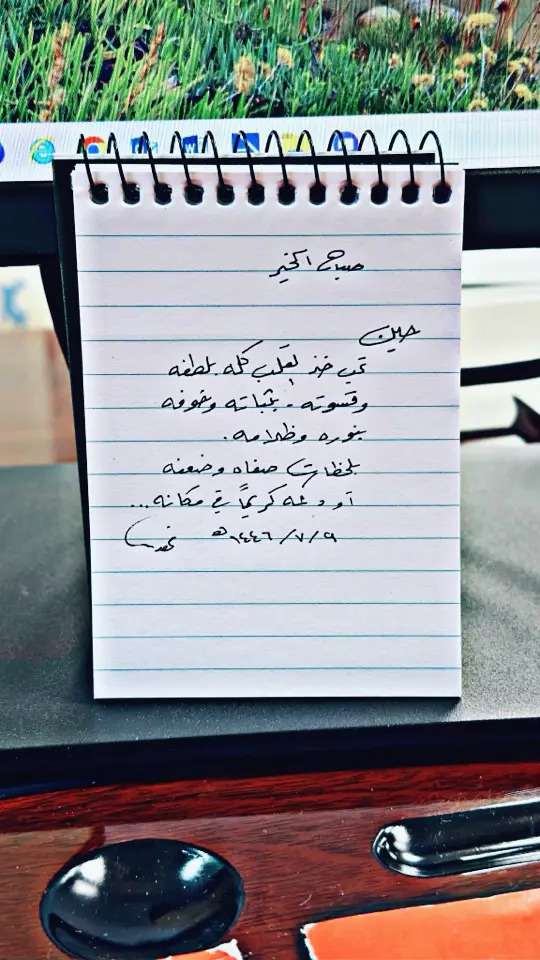 صباح الخير
حين
تحب خذ القلب كله بلطفه
وقسوته. بثباته وخوفه
بنوره وظلامه.
بلحظات صفاه وضعفه
أو دعه كريمًا في مكانه...
١٤٤٦/٧/٩ هـ